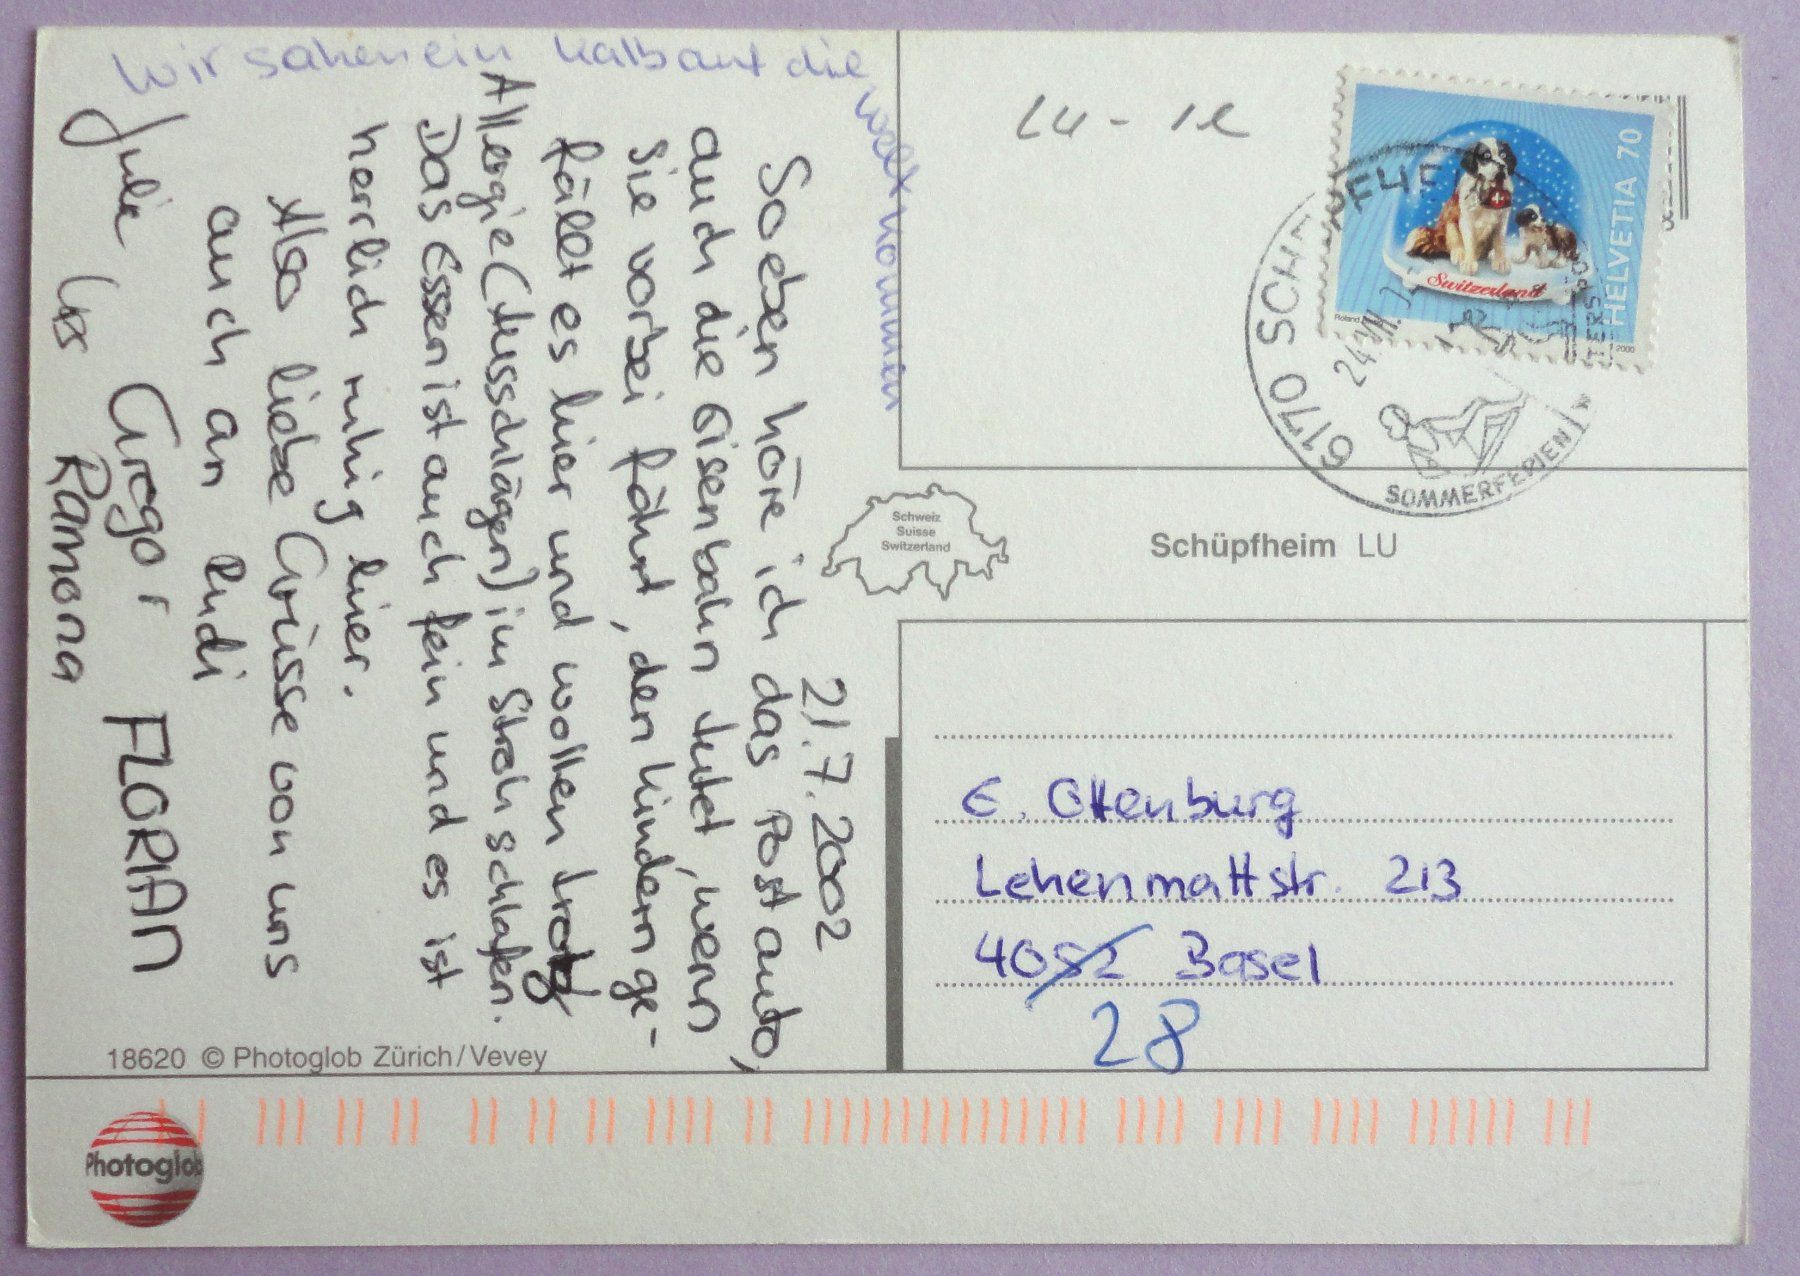 Wir sahen ein Kalb auf die
Welt kommen
21.7.2002
Soeben höre ich das Postauto,
auch die Eisenbahn tutet, wenn
sie vorbei fährt, den Kindern ge-
fällt es hier und wollen trotz
Allergie (Ausschlägen) im Stroh schlafen.
Das Essen ist auch fein und es ist
herrlich ruhig hier.
Also liebe Grüsse von uns
auch an Rudi
Julie Gregor FLORIAN
Urs Ramona
LU - 12
HELVETIA 70
Switzerland
Roland
2000
6170 SCH
24. VII.
SOMMERFERIEN
Schweiz
Suisse
Switzerland
Schüpfheim LU
E. Ottenburg
Lehenmattstr. 213
4052 Basel
28
18620 © Photoglob Zürich/Vevey
Photoglob